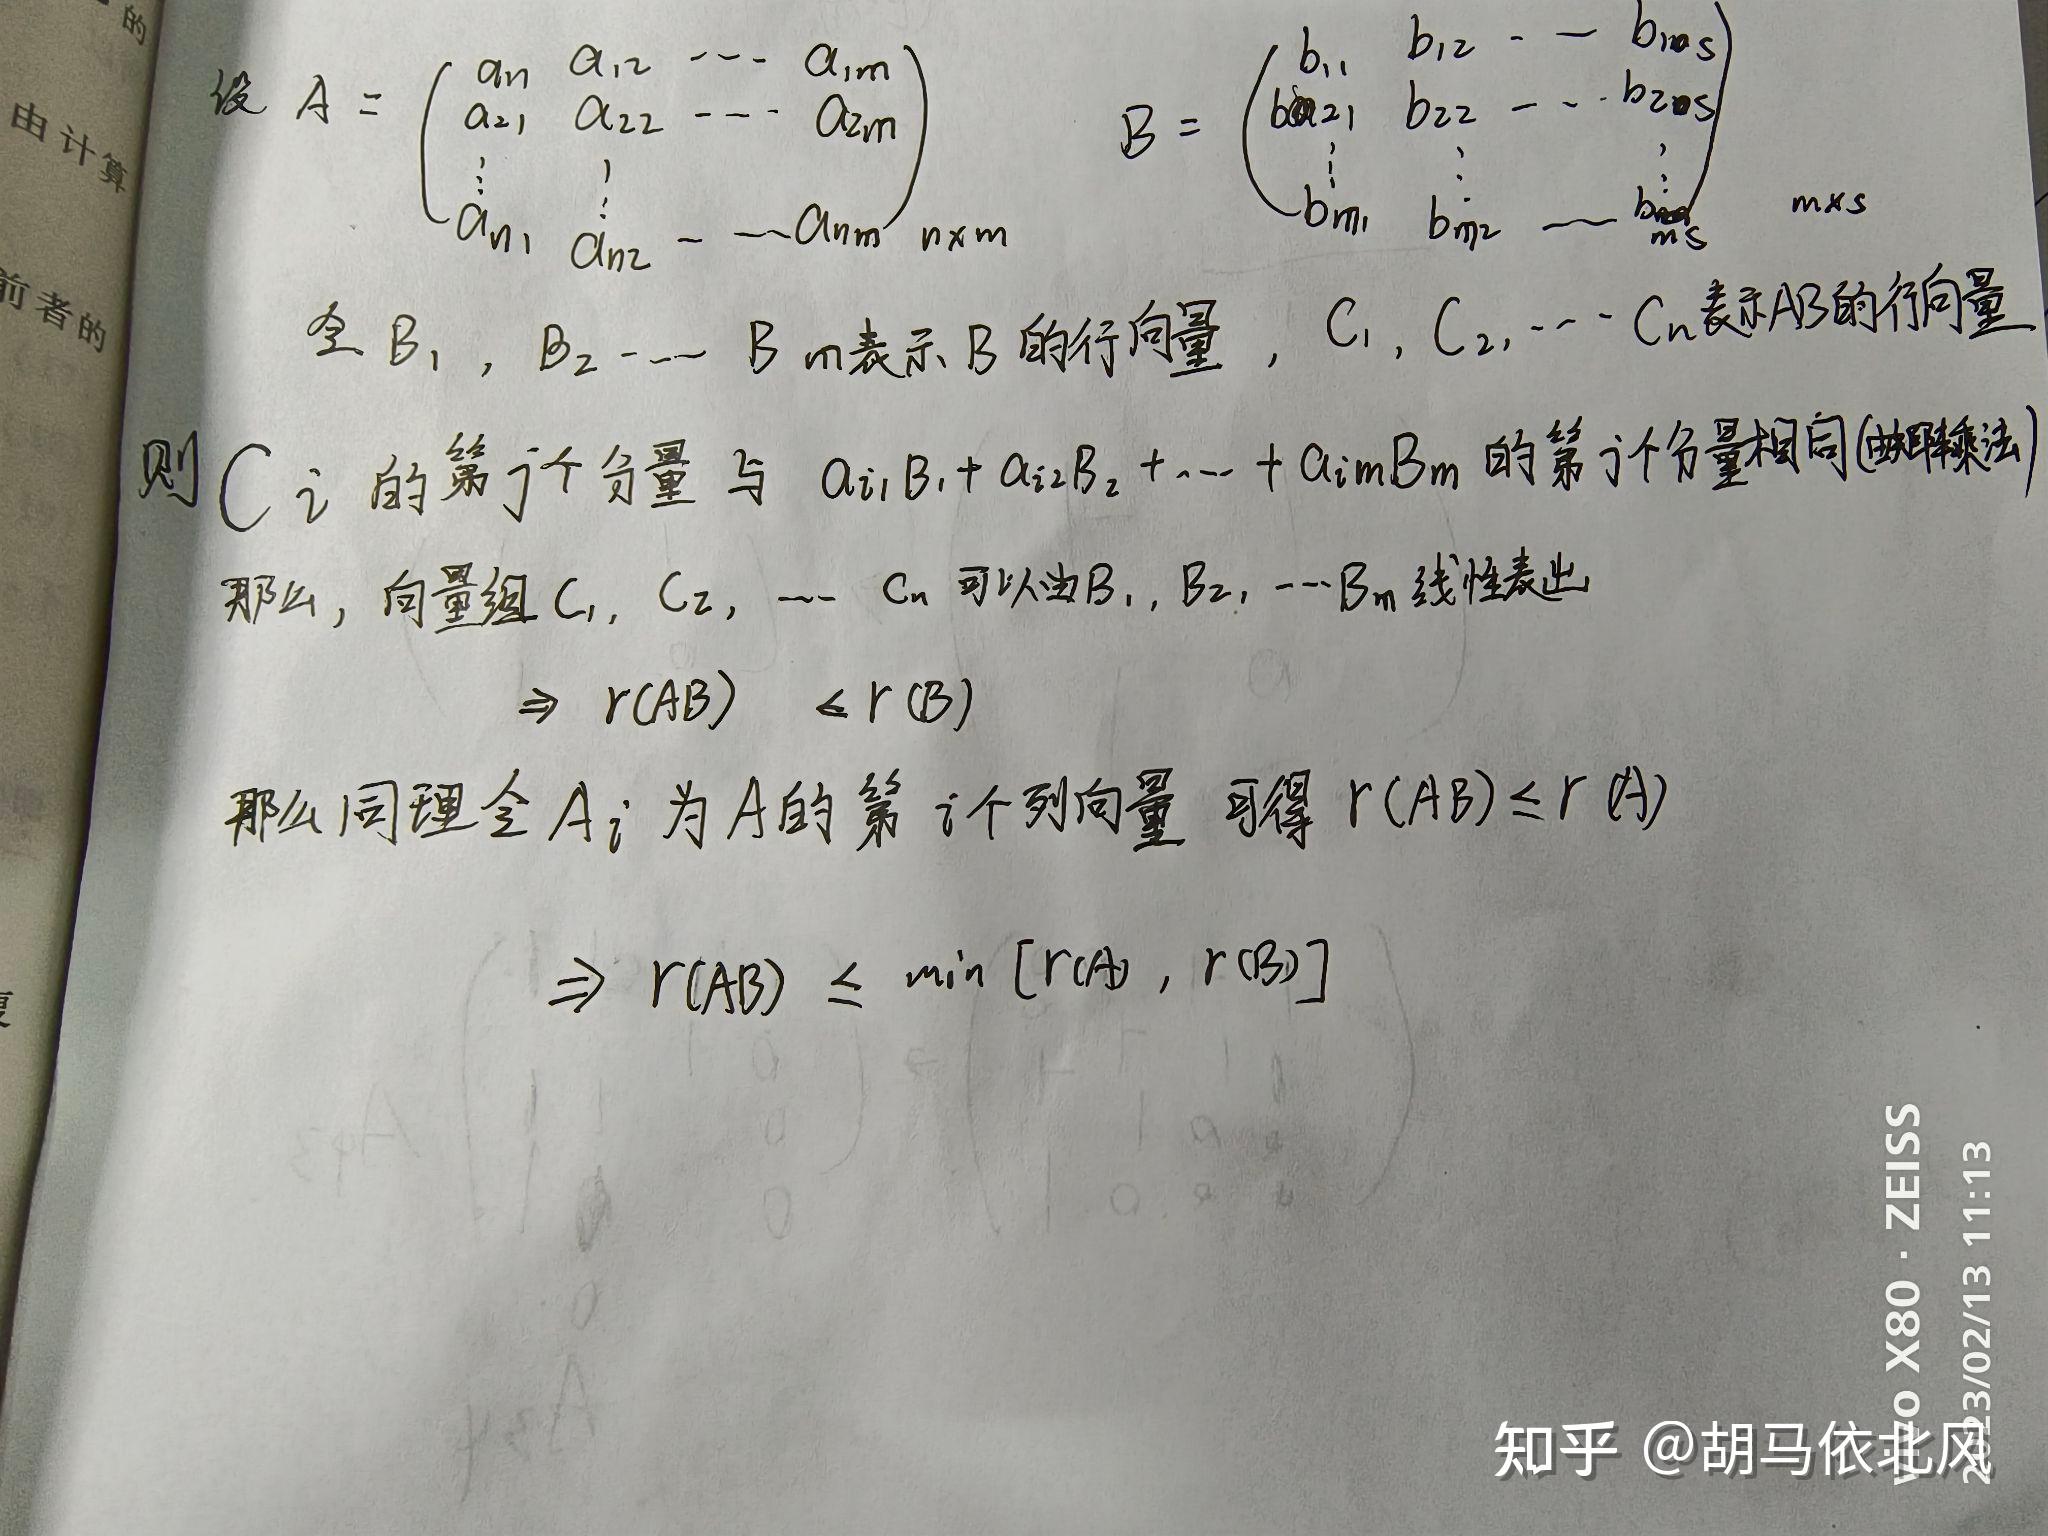 的
由计算
前者的
设 A = ( a11 a12 ---- a1m
a21 a22 ---- a2m
⋮ ⋮
an1 an2 - --- anm ) n×m
B = ( b11 b12 - -- b1s
b21 b22 -- - b2s
⋮ ⋮ ⋮
bm1 bm2 --- bms ) m×s
令 B1 , B2 ---- Bm表示B的行向量 , C1 , C2, ---- Cn表示AB的行向量
则 Ci 的第j个分量 与 ai1B1 + ai2B2 + ... + aimBm 的第j个分量相同(由矩阵乘法)
那么, 向量组 C1, C2, --- Cn 可以由B1, B2, ---Bm 线性表出
⇒ r(AB) ≤ r(B)
那么同理令 Ai 为A的第i个列向量 可得 r(AB) ≤ r(A)
⇒ r(AB) ≤ min [r(A) , r(B)]
vivo X80 · ZEISS
2023/02/13 11:13
知乎 @胡马依北风